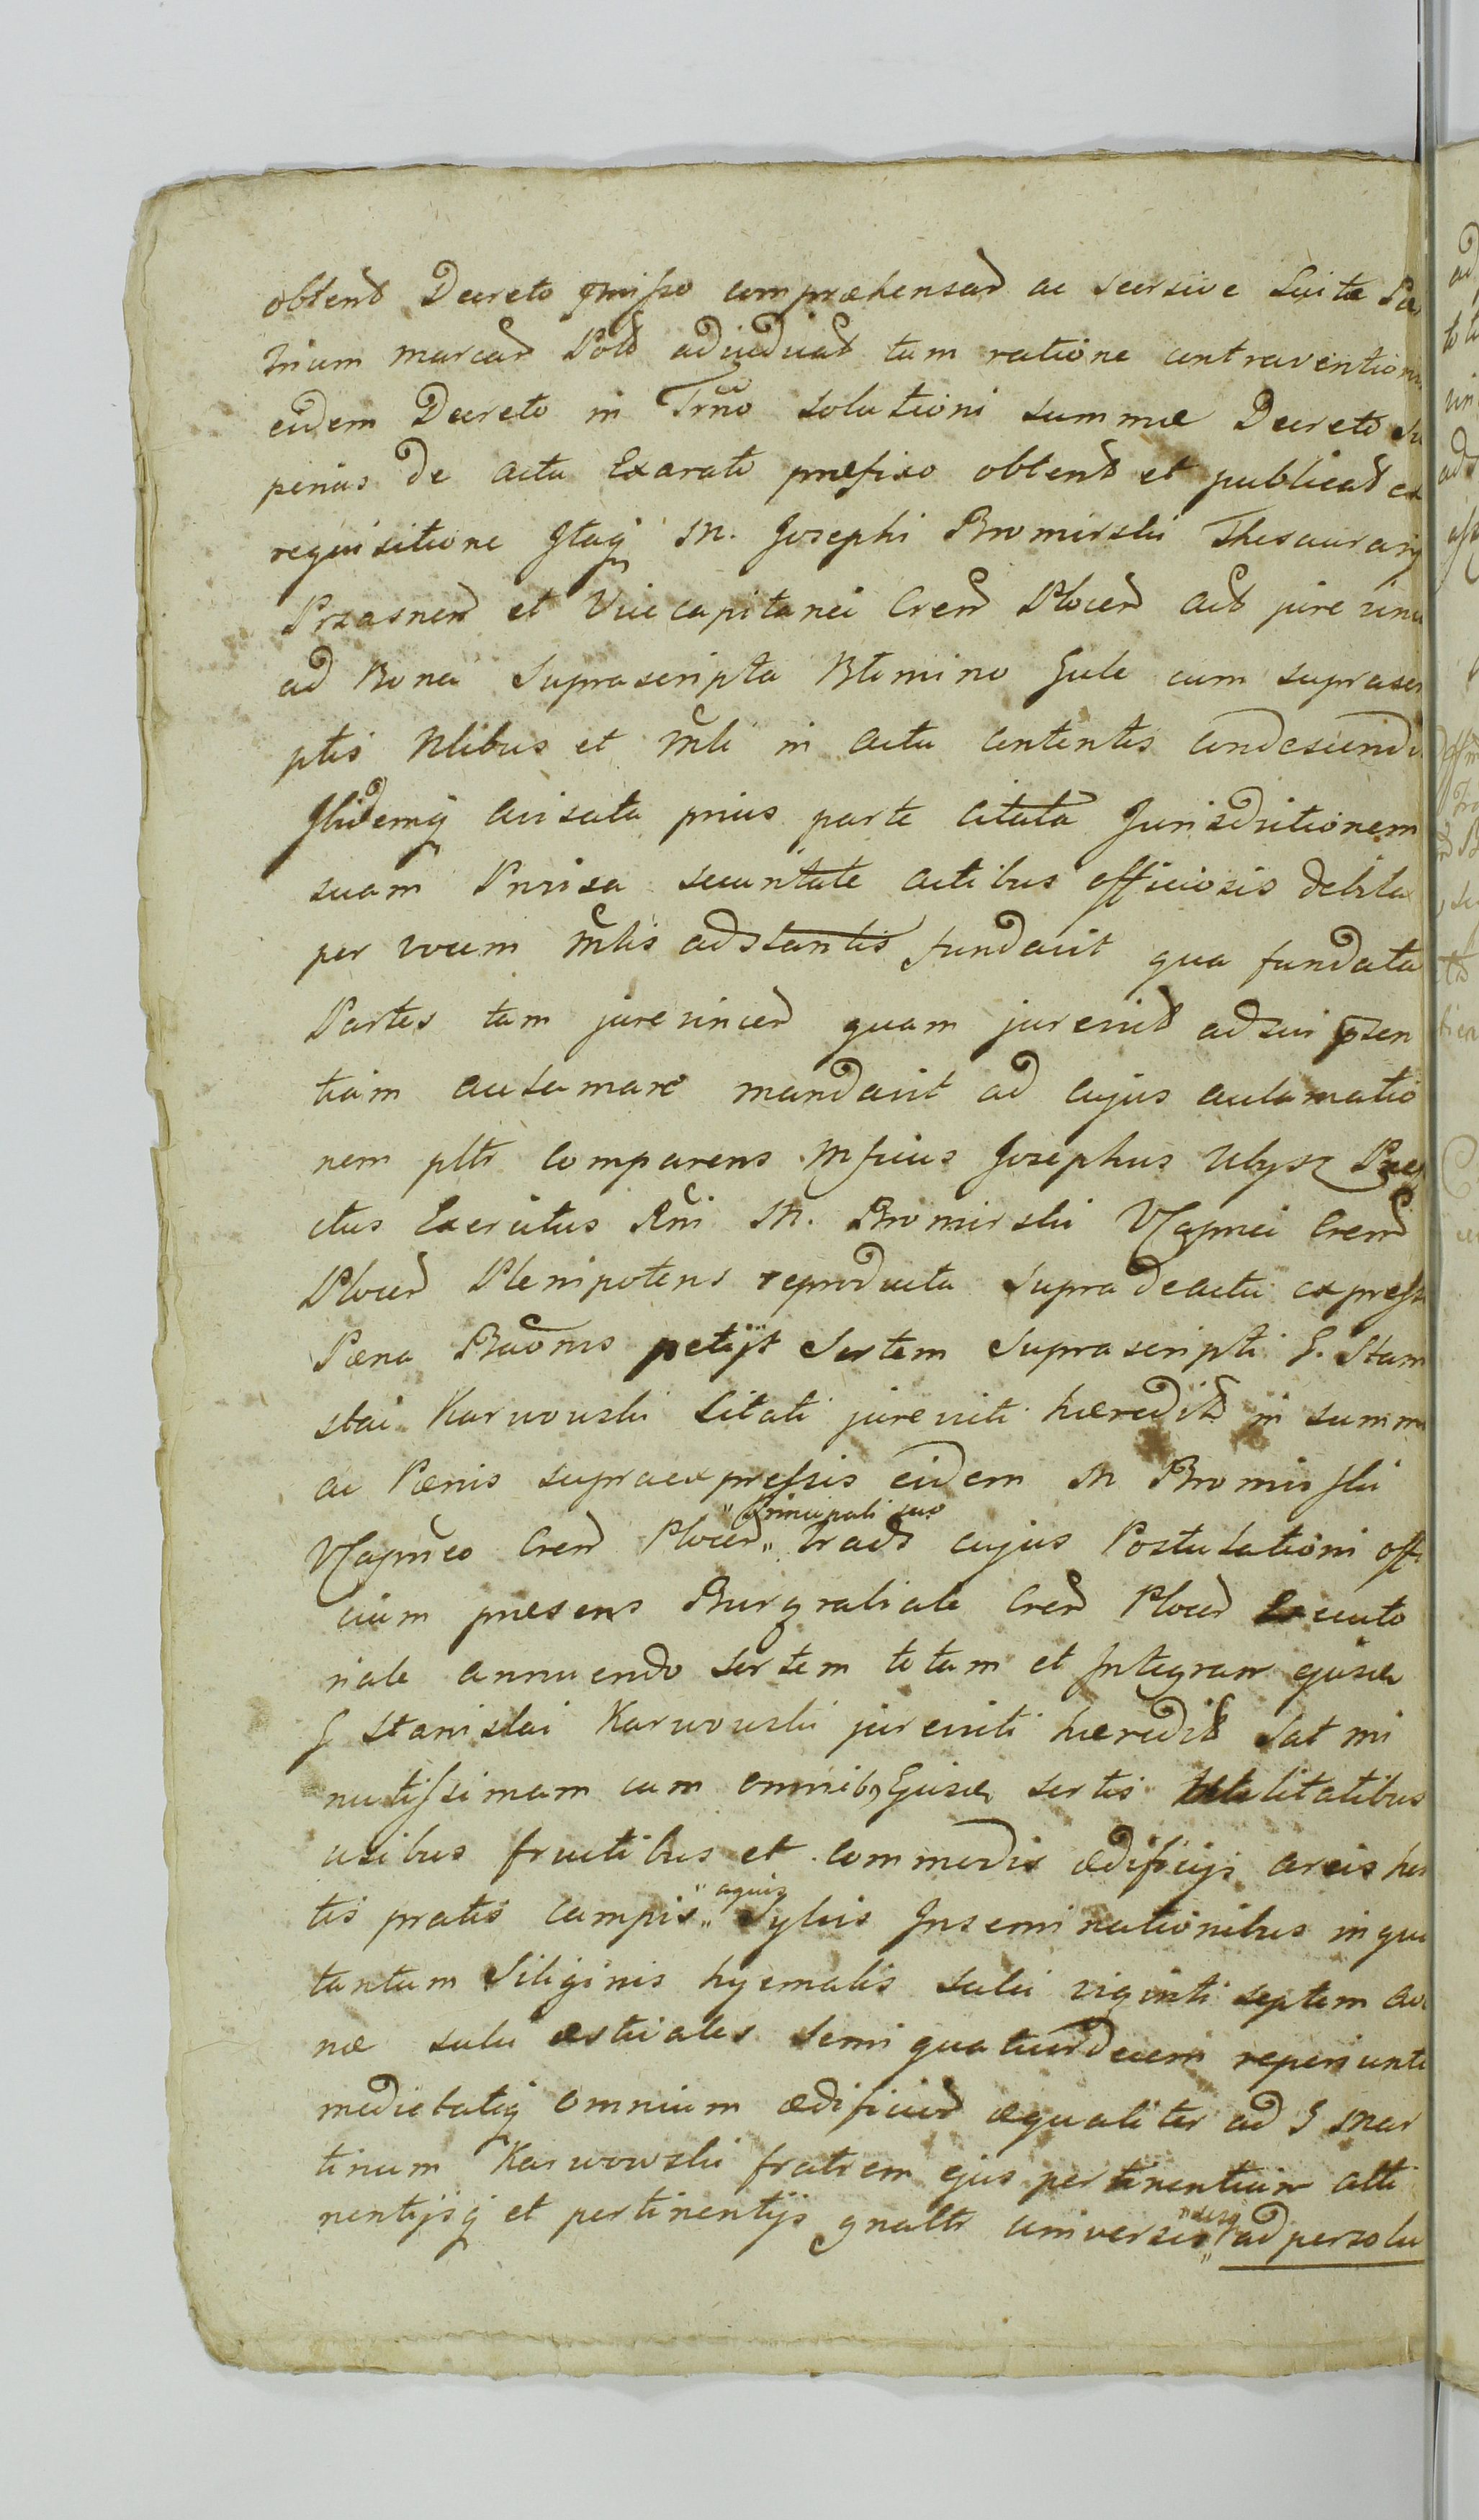 obtent Decreto præmisso compræhensar ac seorsive Luitæ Pæ
trium marcar Polo adjudicat tum ratione contraventionis
eidem Decreto in Trno solutioni summæ Decreto su
perius de actu Exarato præfixo obtent et publicat ex
requisitione Itaq M. Josephi Bromirski Thesaurarij
Przasnen et Vice capitanei Cren Plocen act jure vinc
ad Bona Suprascripta Btomino Gule cum suprascri
ptis Nlibus et Mli in actu contentis condescendit
Ibidemq avisata prius parte citata Jurisdictionem
suam Privisa securitate actibus officiosis debita
per vocem Mlis adstantis fundavit qua fundata
Partes tam jurevincen quam jurevict ad sui præsen
tiam acclamare mandavit ad cujus acclamatio
nem pltr Comparens Mficus Josephus Ulysz Præfe
ctus Exercitus Rni M. Bromirski VCapnei Cren
Plocen Plenipotens reproducta supra de actu express
Pæna Baonis petijt Sortem Suprascripti G. Stani
slai Karwowski Citati jurevicti hæredit in summ
ac Pænis supraexpressis eidem M Bromirski
VCapneo Cren Plocen „ Principali suo „ tradi cujus Postulationi offi
cium præsens Burgrabiale Cren Plocen Executo
riale annuendo sortem totam et Integram ejusde
G Stanislai Karwowski jurevicti hæredit Sat mi
nutissimam cum omnibq Ejusde sortis utilitatibus
usibus fructibus et commodis ædificijs areis hor
tis pratis campis „ aquis „ Sylvis Inseminationibus in qua
tantum Siliginis hyemalis sulci viginti septem Ave
næ sulci æstivales semi quatuordecem reperiunt
medietatiq omnium ædificior æqualiter ad G Mar
tinum Karwowski fratrem ejus pertinentium atti
nentijsq et pertinentijs gnaltr universis ad persolu